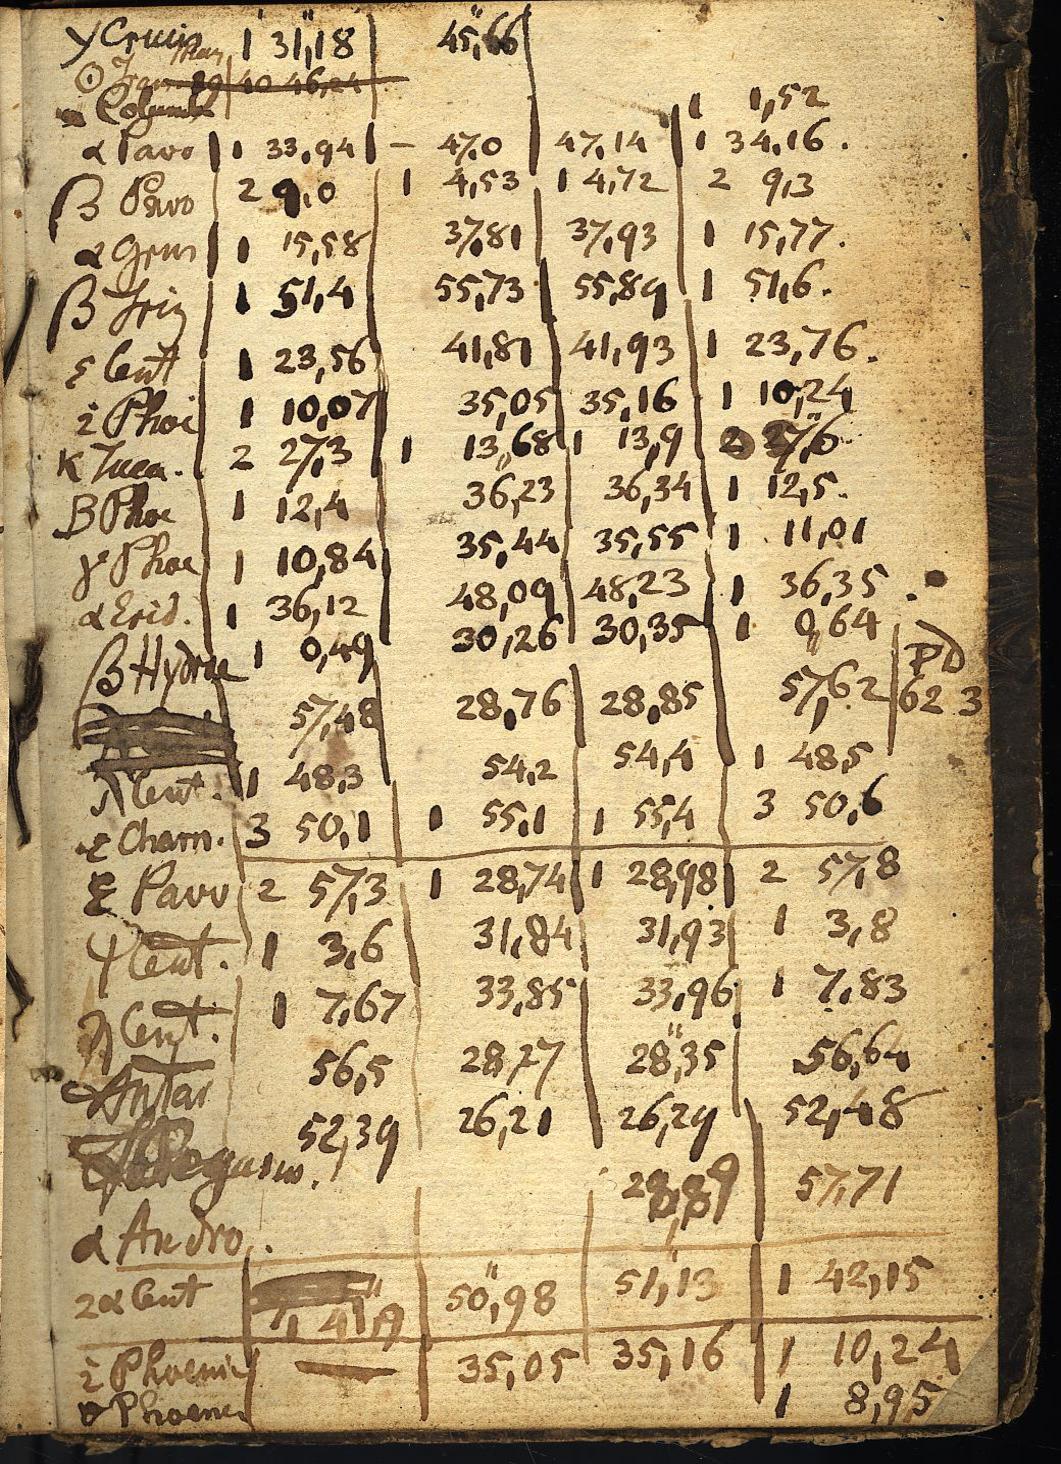 γ Crucis 1 31,18 45,66
40 46,24
Columb 1 1,52
α Pavo 1 33,94 – 47,0 47,14 1 34,16.
β Pavo 2 9,0 1 4,53 1 4,72 2 9,3
α Grus 1 15,58 37,81 37,93 1 15,77.
β Tria 1 51,4 55,73 55,89 1 51,6.
ε Cent 1 23,56 41,81 41,93 1 23,76.
i Phoe 1 10,07 35,05 35,16 1 10,24
K Tuca. 2 27,3 1 13,68 1 13,9 2 27,6
β Phoe 1 12,4 36,23 36,34 1 12,5.
γ Phoe 1 10,84 35,44 35,55 1 11,01
α Erid. 1 36,12 48,09 48,23 1 36,35.
β Hydrae 1 0,49 30,26 30,35 1 0,64 PD
57,48 28,76 28,85 57,62 62 3
λ Cent. 1 48,3 54,2 54,4 1 48,5
ε Cham. 3 50,1 1 55,1 1 55,4 3 50,6
ε Pavo 2 57,3 1 28,74 1 28,98 2 57,8
Cent. 1 3,6 31,84 31,93 1 3,8
η Cent. 1 7,67 33,85 33,96 1 7,83
Antar 56,5 28,27 28,35 56,64
Pegasus. 52,39 26,21 26,29 52,48
α Andro. 28,89 57,71
2α Cent 1, 41,9 50,98 51,13 1 42,15
i Phoenic 35,05 35,16 1 10,24
Phoenic 1 8,95